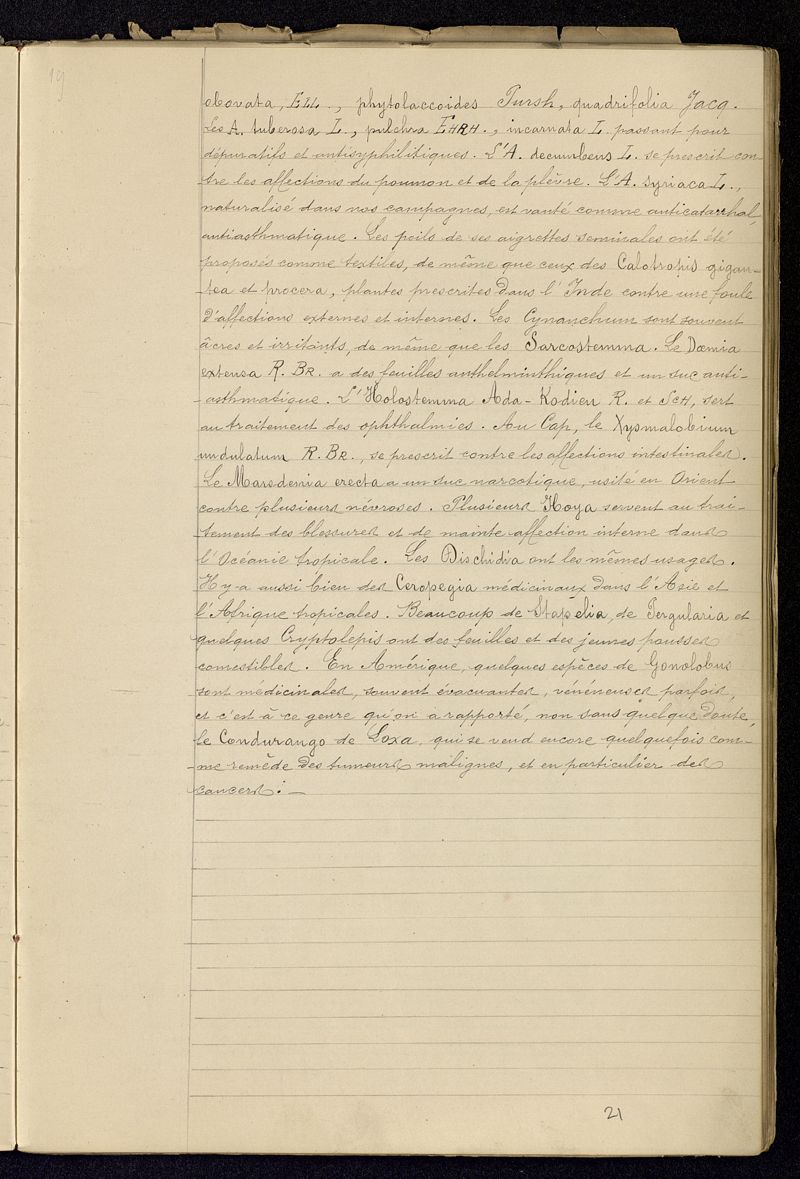 19
obovata, ELL., phytolaccoides Pursh, quadrifolia Jacq.
Les A. tuberosa L., pulchra EHRH., incarnata L. passent pour
dépuratifs et antisyphilitiques. L'A. decumbens L. se prescrit con-
tre les affections du poumon et de la plèvre. L'A. syriaca L.,
naturalisé dans nos campagnes, est vanté comme anticatarrhal,
antiasthmatique. Les poils de ses aigrettes séminales ont été
proposés comme textiles, de même que ceux des Calotropis gigan-
tea et procera, plantes prescrites dans l'Inde contre une foule
d'affections externes et internes. Les Cynanchum sont souvent
âcres et irritants, de même que les Sarcostemma. Le Dæmia
extensa R. BR. a des feuilles anthelminthiques et un suc anti-
-asthmatique. L'Holostemma Ada-Kodien R. et SCH, sert
au traitement des ophthalmies. Au Cap, le Xysmalobium
undulatum R. BR., se prescrit contre les affections intestinales.
Le Marsdenia erecta a un suc narcotique, usité en Orient
contre plusieurs névroses. Plusieurs Hoya servent au trai-
tement des blessures et de mainte affection interne dans
l'Océanie tropicale. Les Dischidia ont les mêmes usages.
Il y a aussi bien des Ceropegia médicinaux dans l'Asie et
l'Afrique tropicales. Beaucoup de Stapelia, de Pergularia et
quelques Cryptolepis ont des feuilles et des jeunes pousses
comestibles. En Amérique, quelques espèces de Gonolobus
sont médicinales, souvent évacuantes, vénéneuses parfois,
et c'est à ce genre qu'on a rapporté, non sans quelque doute,
le Condurango de Loxa, qui se vend encore quelquefois com-
-me remède des tumeurs malignes, et en particulier des
cancers:—
21